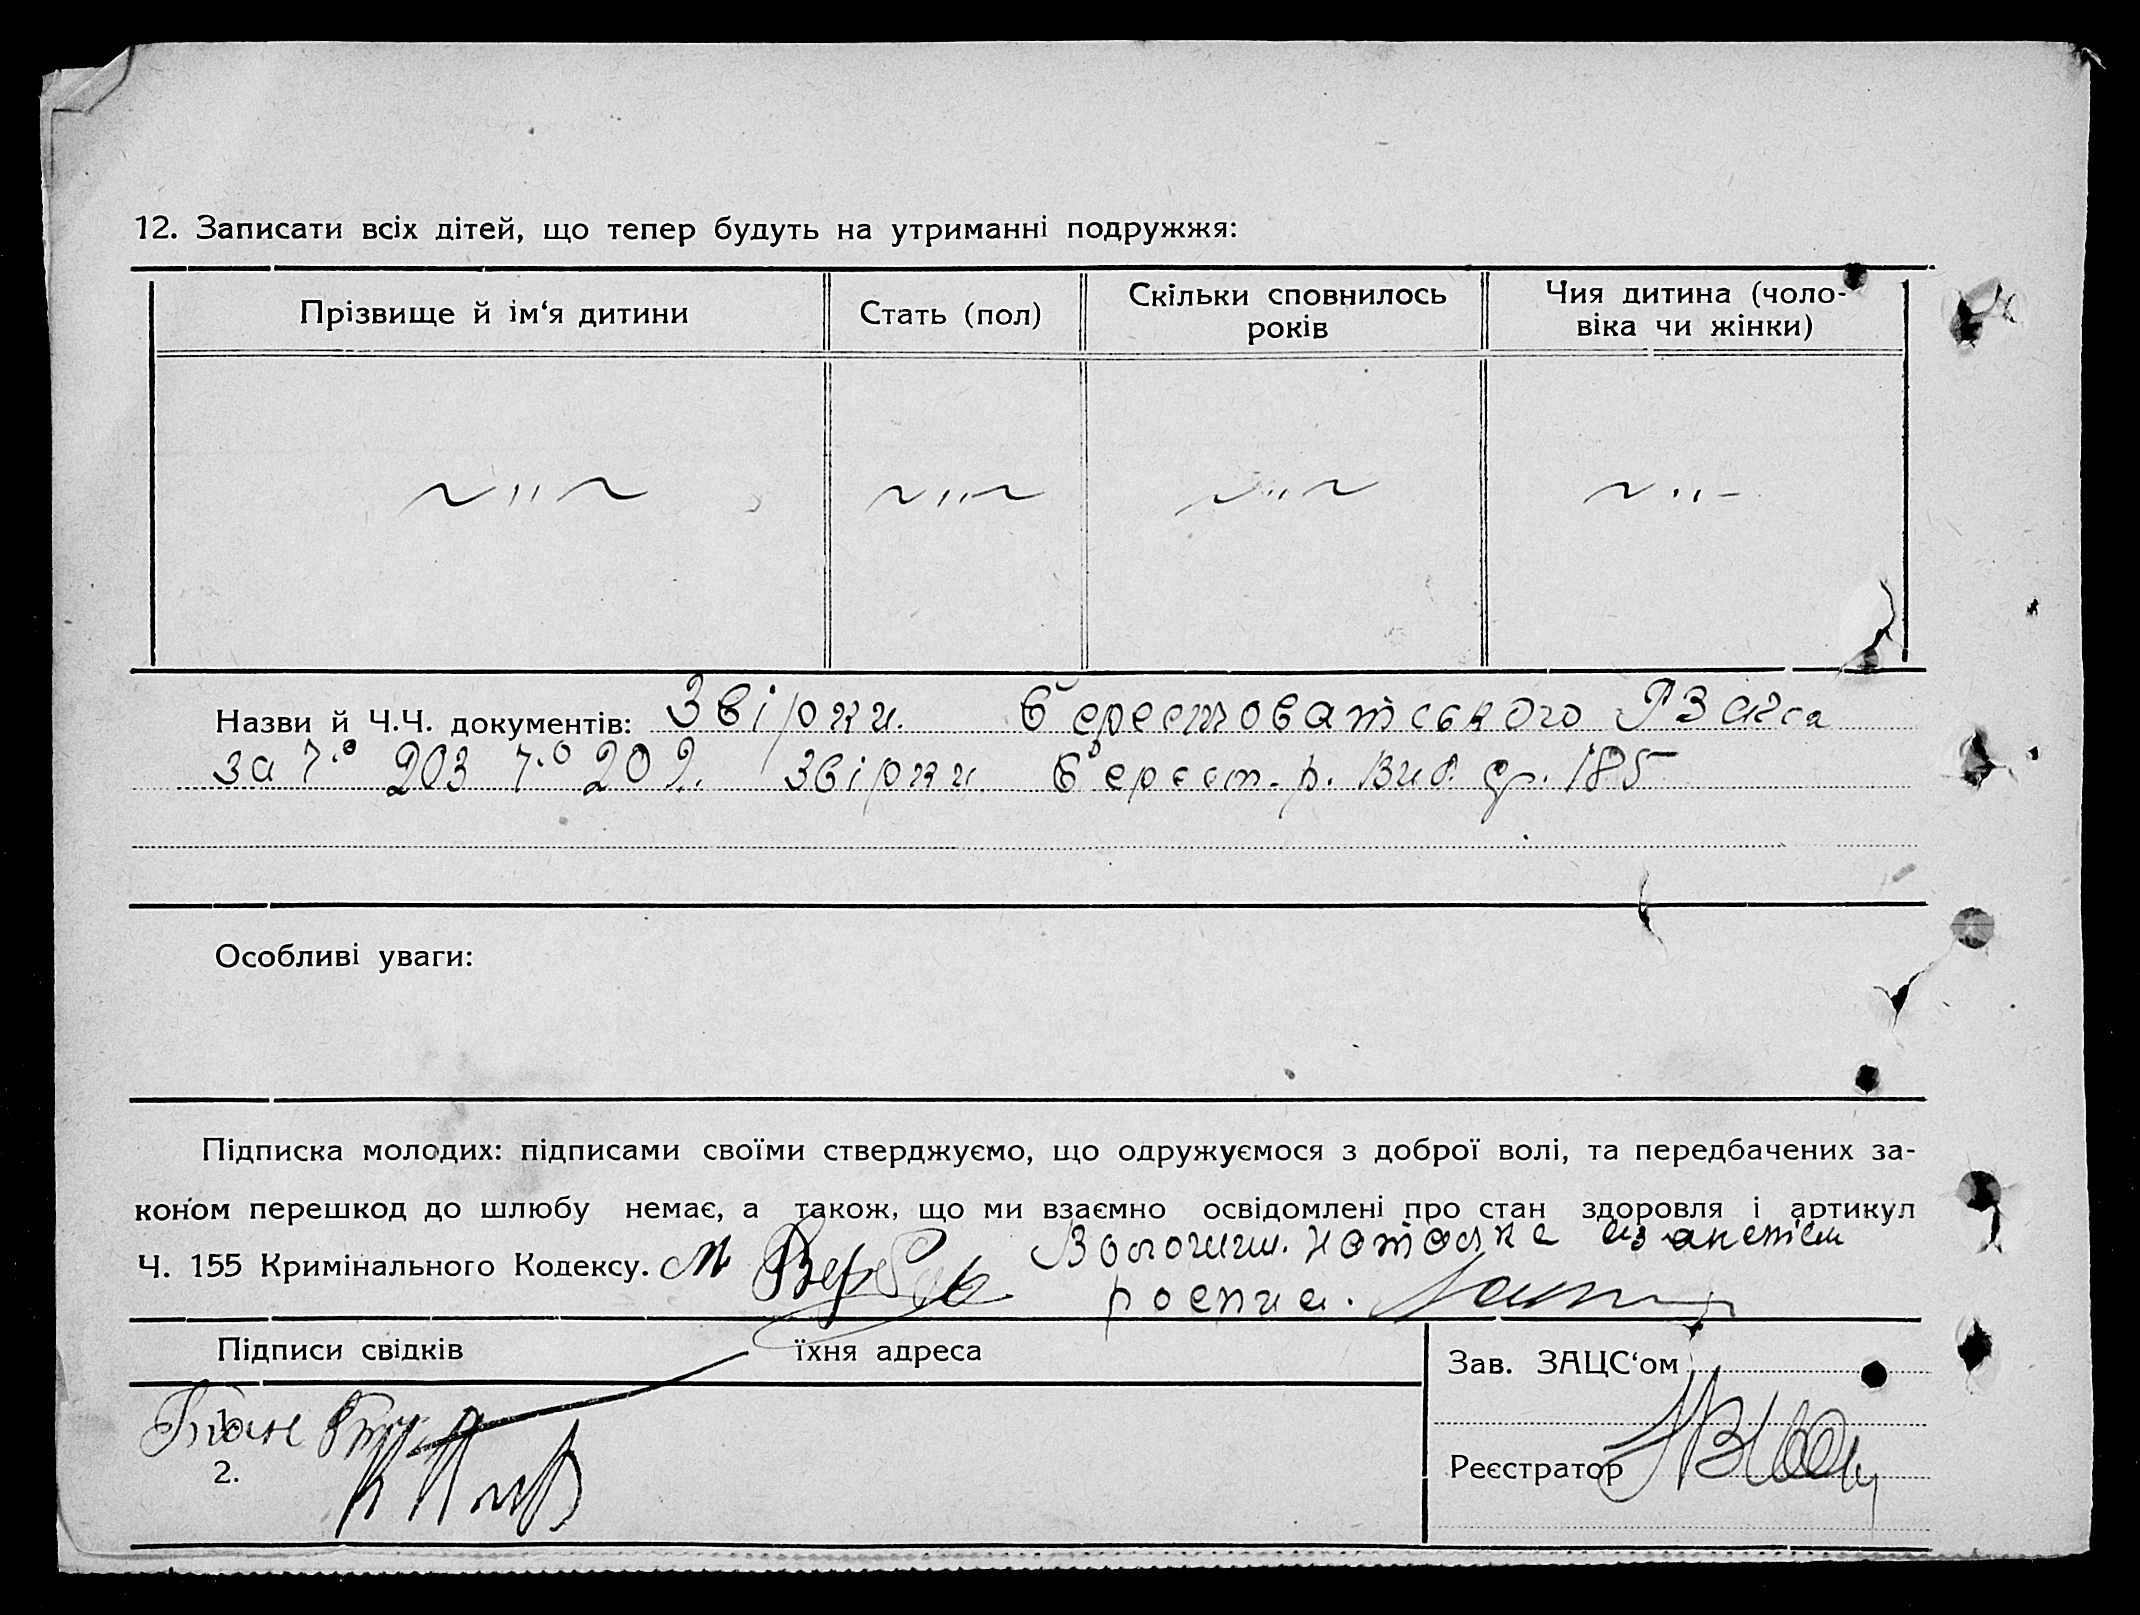 12. Записати всіх дітей, що тепер будуть на утриманні подружжя:
Прізвище й ім‘я дитини
Стать (пол)
Скільки сповнилось
років
Чия дитина (чоло-
віка чи жінки)
~ " ~
~ " ~
~ " ~
~ " –
Назви й Ч.Ч. документів: Звірки. Берестоватського РЗАгса
за ч.о 203 ч.о 202. Звірки Берест. р. вид. 185
Особливі уваги:
Підписка молодих: підписами своїми стверджуємо, що одружуємося з доброї волі, та передбачених за-
коном перешкод до шлюбу немає, а також, що ми взаємно освідомлені про стан здоровля і артикул
Ч. 155 Кримінального Кодексу.
Підписи свідків
їхня адреса
Зав. ЗАЦС‘ом
1.
2.
Реєстратор